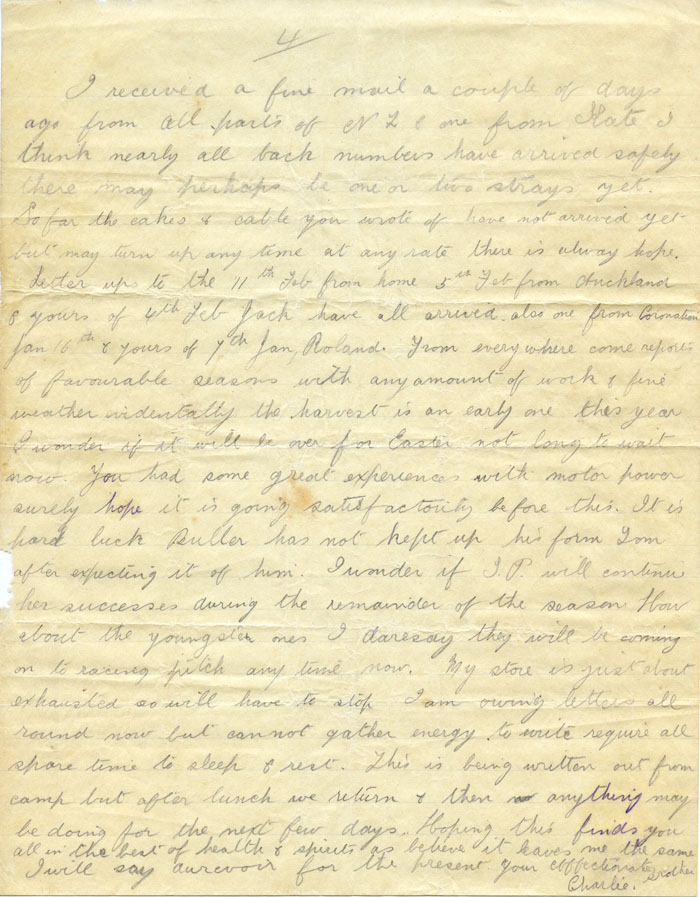 4
I received a fine mail a couple of days
ago from all parts of N Z & one from Kate I
think nearly all back numbers have arrived safely
there may perhaps be one or two strays yet.
So far the cakes & cable you wrote of have not arrived yet
but may turn up any time at any rate there is alway hope.
Letter ups to the 11th Feb from home 5th Feb from Auckland
& yours of 4th Feb Jack have all arrived also one from Coronation
Jan 16th & yours of 7th Jan, Roland. From everywhere come reports
of favourable seasons with any amount of work & fine
weather evidentally the harvest is an early one this year
I wonder if it will be over for Easter not long to wait
now. You had some great experiences with motor power
surely hope it is going satisfactority before this. It is
hard luck Buller has not kept up his form Tom
after expecting it of him. I wonder if I.P. will continue
her successes during the remainder of the season How
about the youngster ones I daresay they will be coming
on to racing pitch any time now. My store is just about
exhausted so will have to stop I am owing letters all
round now but cannot gather energy to write require all
spare time to sleep & rest. This is being written out from
camp but after lunch we return & then anything may
be doing for the next few days. Hoping this finds you
all in the best of health & spirits as believe it leaves me the same
I will say aurevoir for the present your affectionate Brother
Charlie.